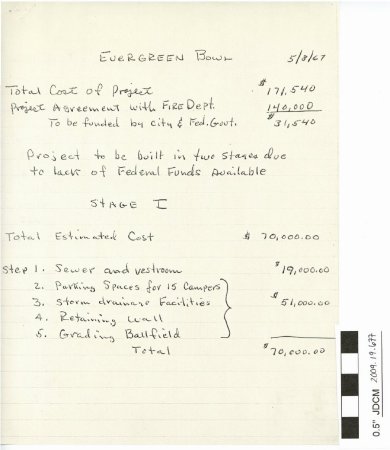 EVERGREEN BOWL 5/8/67
Total Cost of Project $171,540
Project Agreement with FIRE Dept. 140,000
To be funded by city & Fed. Govt. $31,540
Project to be built in two stages due
to lack of Federal Funds Available
STAGE I
Total Estimated Cost $ 70,000.00
Step 1. Sewer and restroom $19,000.00
2. Parking Spaces for 15 Campers
3. Storm drainage Facilities $51,000.00
4. Retaining Wall
5. Grading Ballfield
Total $70,000.00
0.5" JDCM 2009.19.677